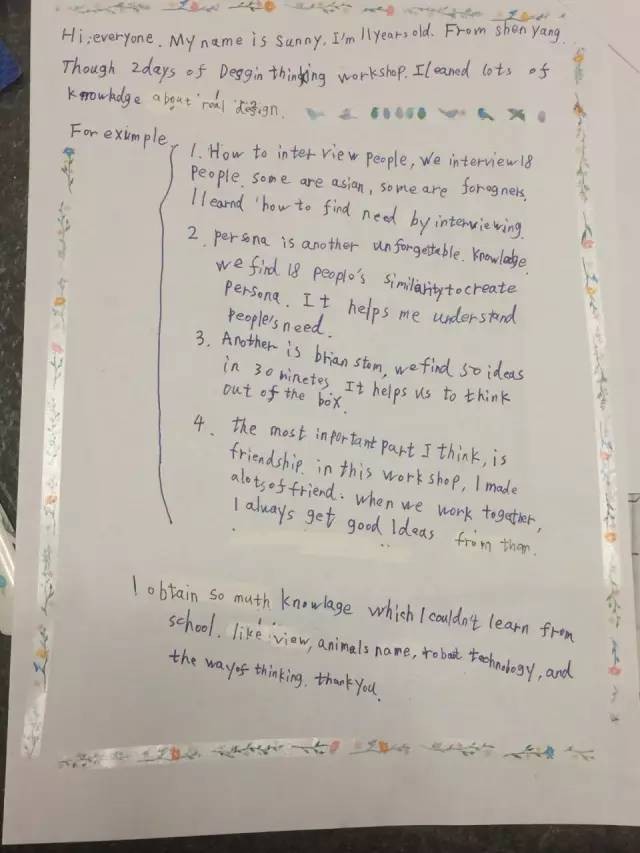 Hi, everyone. My name is Sunny. I'm 11 years old. From shen yang.
Though 2days of Deggin thinking workshop. I leaned lots of
knowladge about real design.
For exímple
1. How to inter view people, we interview 18
people. some are asian, some are foregners,
I learnd how to find need by interviewing.
2. persona is another unforgettable. knowladge.
we find 18 peoplo's similarity to create
persona. It helps me understand
people's need.
3. Another is brian stom, we find 50 ideas
in 30 minetes. It helps us to think
out of the box.
4. the most inportant part I think, is
friendship. in this work shop, I made
alots of friend. when we work together,
I always get good Ideas from them.
I obtain so muth knowlage which I couldn't learn from
school. like view, animals name, robost technology, and
the way of thinking. thank you.